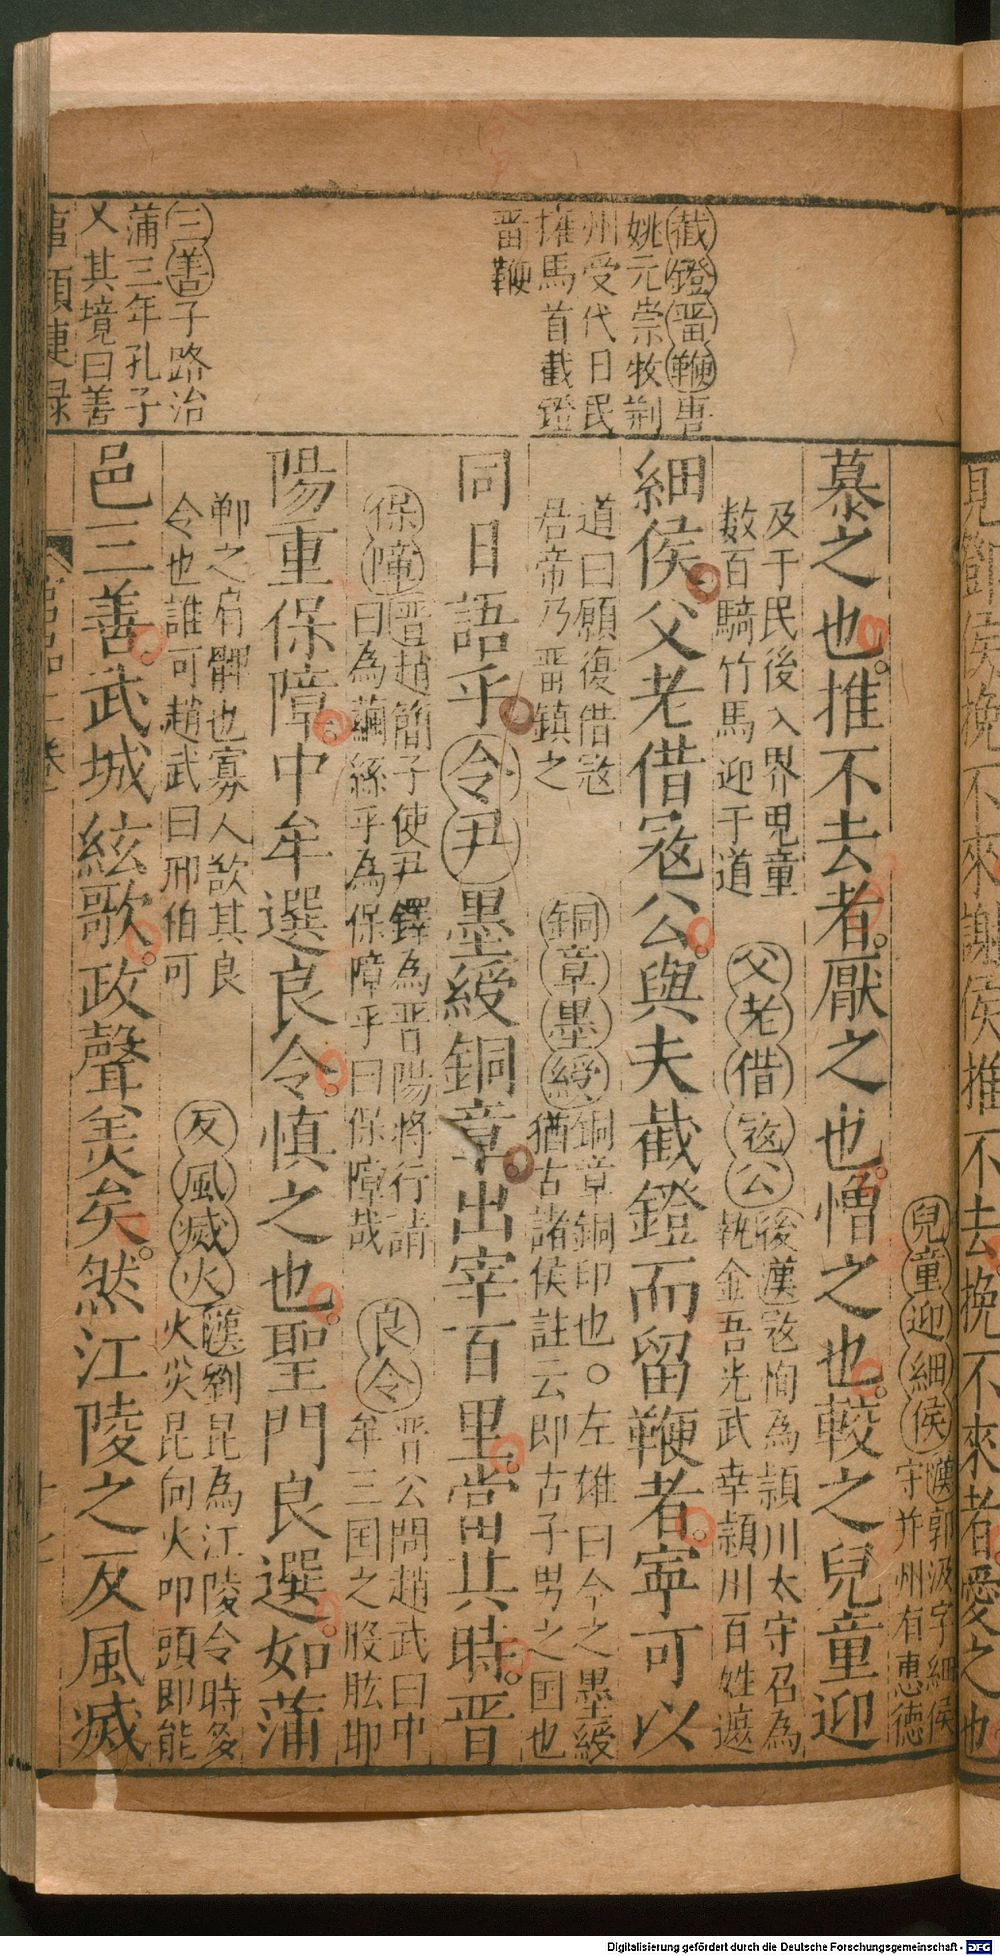 截鐙晋鞭唐
姚元崇牧荆
州受代日民
擁馬首截鐙
晋鞭
三善子路治
蒲三年孔子
入其境曰善
兒童迎細侯漢郭汲字細侯
守并州有惠徳
慕之也推不去者厭之也憎之也較之兒童迎
及于民後入界見童
数百騎竹馬迎于道
父老借宼公後漢宼恂為頴川太守召為
執金吾光武幸頴川百姓遮
細侯父老借宼公與夫截鐙而留鞭者寕可以
道曰願復借宼
君帝乃晋鎮之
銅章墨綬銅章銅印也○左雄曰今之墨綬
猶古諸侯註云即古子男之国也
同日語乎令尹墨綬銅章出宰百里當其時晋
保障晋趙簡子使尹鐸為晋陽將行請
曰為繭絲乎為保障乎曰保障哉
良令晋公問趙武曰中
牟三国之股肱邯
陽重保障中牟選良令慎之也聖門良選如蒲
鄲之肩髀也寡人欲其良
令也誰可趙武曰邢伯可
反風滅火漢劉昆為江陵令時多
火災昆向火叩頭即能
邑三善武城絃歌政聲羙矣然江陵之反風滅
見鄧侯挽不來謝侯推不去挽不來者愛之也
Digitalisierung gefördert durch die Deutsche Forschungsgemeinschaft - DFG